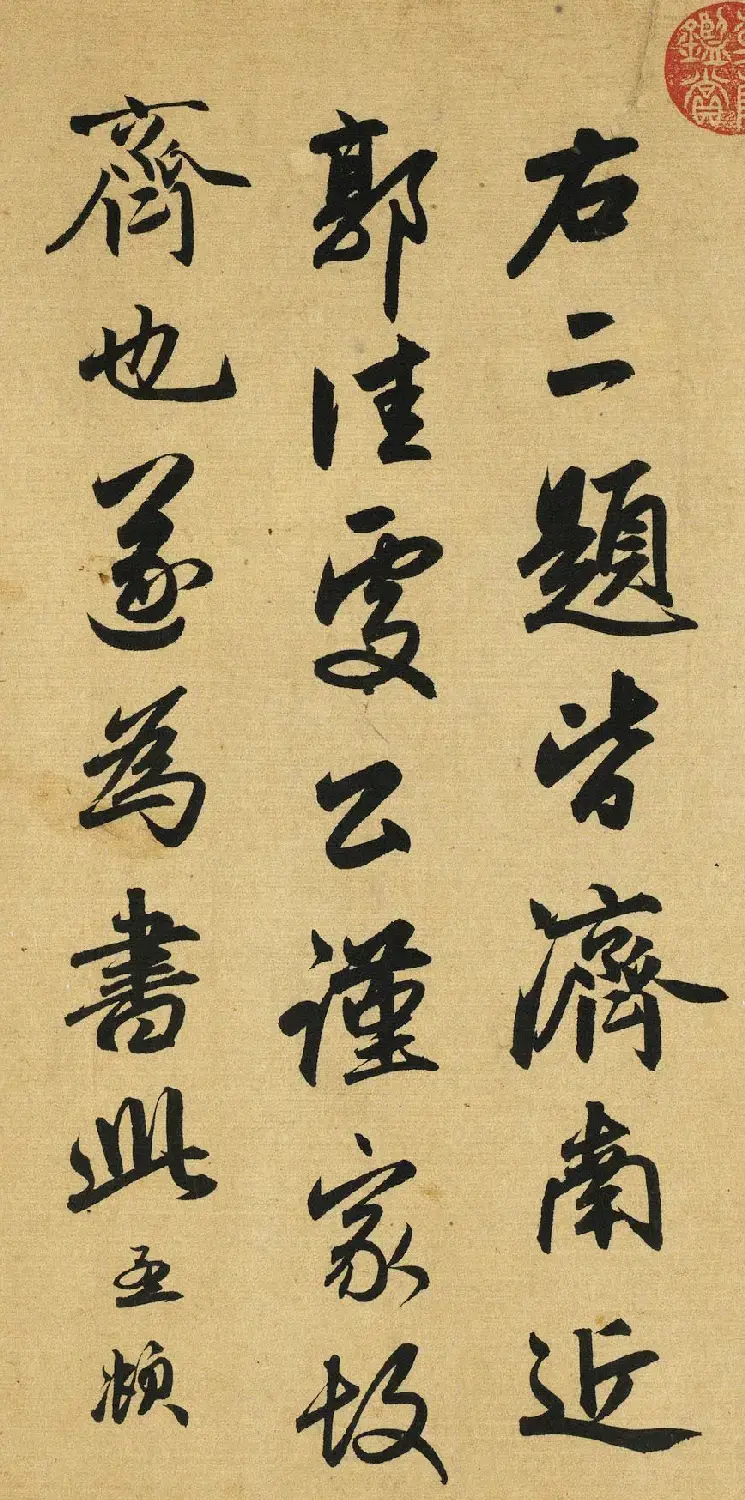 右二題皆濟南近
郭佳處公謹家故
齊也遂為書此孟頫
鑑賞